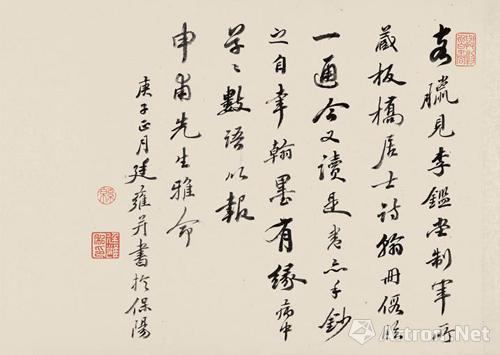 客臘見李鑑堂制軍所
藏板橋居士詩翰冊假臨
一通今又讀是書亦手鈔
之自幸翰墨有緣病中
草〻數語以報
申甫先生雅命
庚子正月廷雍并書於保陽
ArtronNet